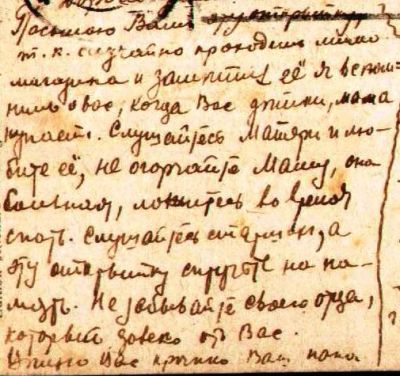 Посылаю Вам эту открытку
т.к. случайно проходил мимо
магазина и заметил её я вспом-
нил о вас, когда Вас, детки, мама
купает. Слушайтесь Матери и лю-
бите её, не огорчайте Маму, она
больная, ложитесь во время
спать. Слушайтесь старших, а
эту открытку спрячьте на па-
мять. Не забывайте своего отца,
который далеко от Вас.
Целую Вас крепко Ваш папа